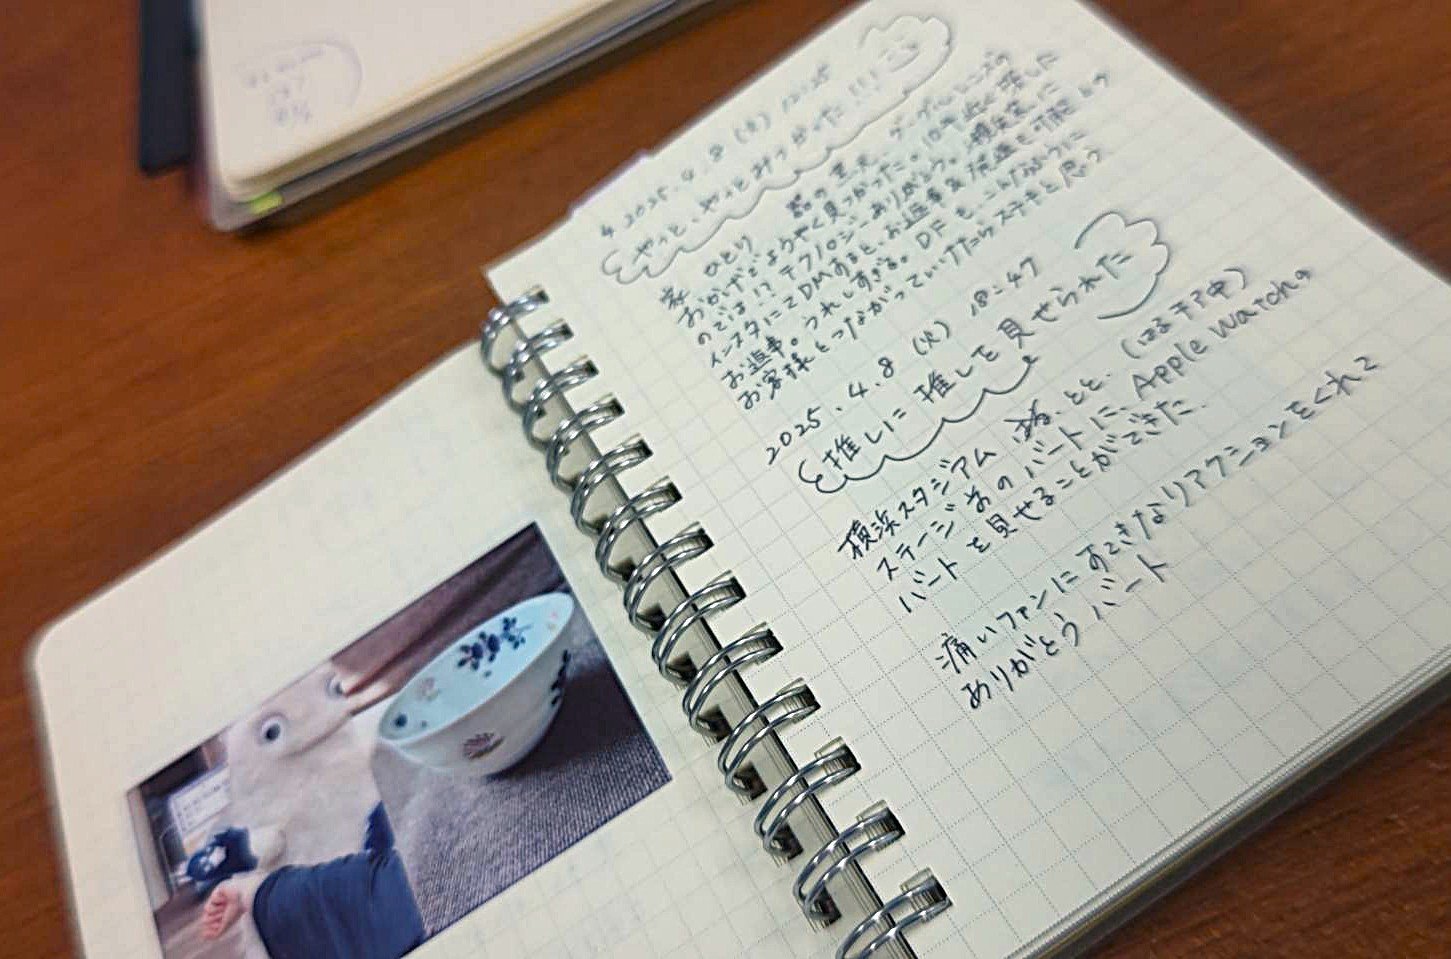 2025.4.8 (火) 12:15
やっと、やっとみつかった!!!
おかげでようやく見つかった。10年近く探した
のでは!? テクノロジーありがとう。
インスタにてDMすると、お返事&発送も可能との
お返事。うれしすぎる。DFも、こんなふうに
お客様とつながっていけたらステキと思う
2025.4.8 (火) 18:47
推しに推しを見せられた
横浜スタジアム
ステージ前のバートに、Apple Watchの
バートを見せることができた.
痛いファンにすてきなリアクションをくれて
ありがとうバート